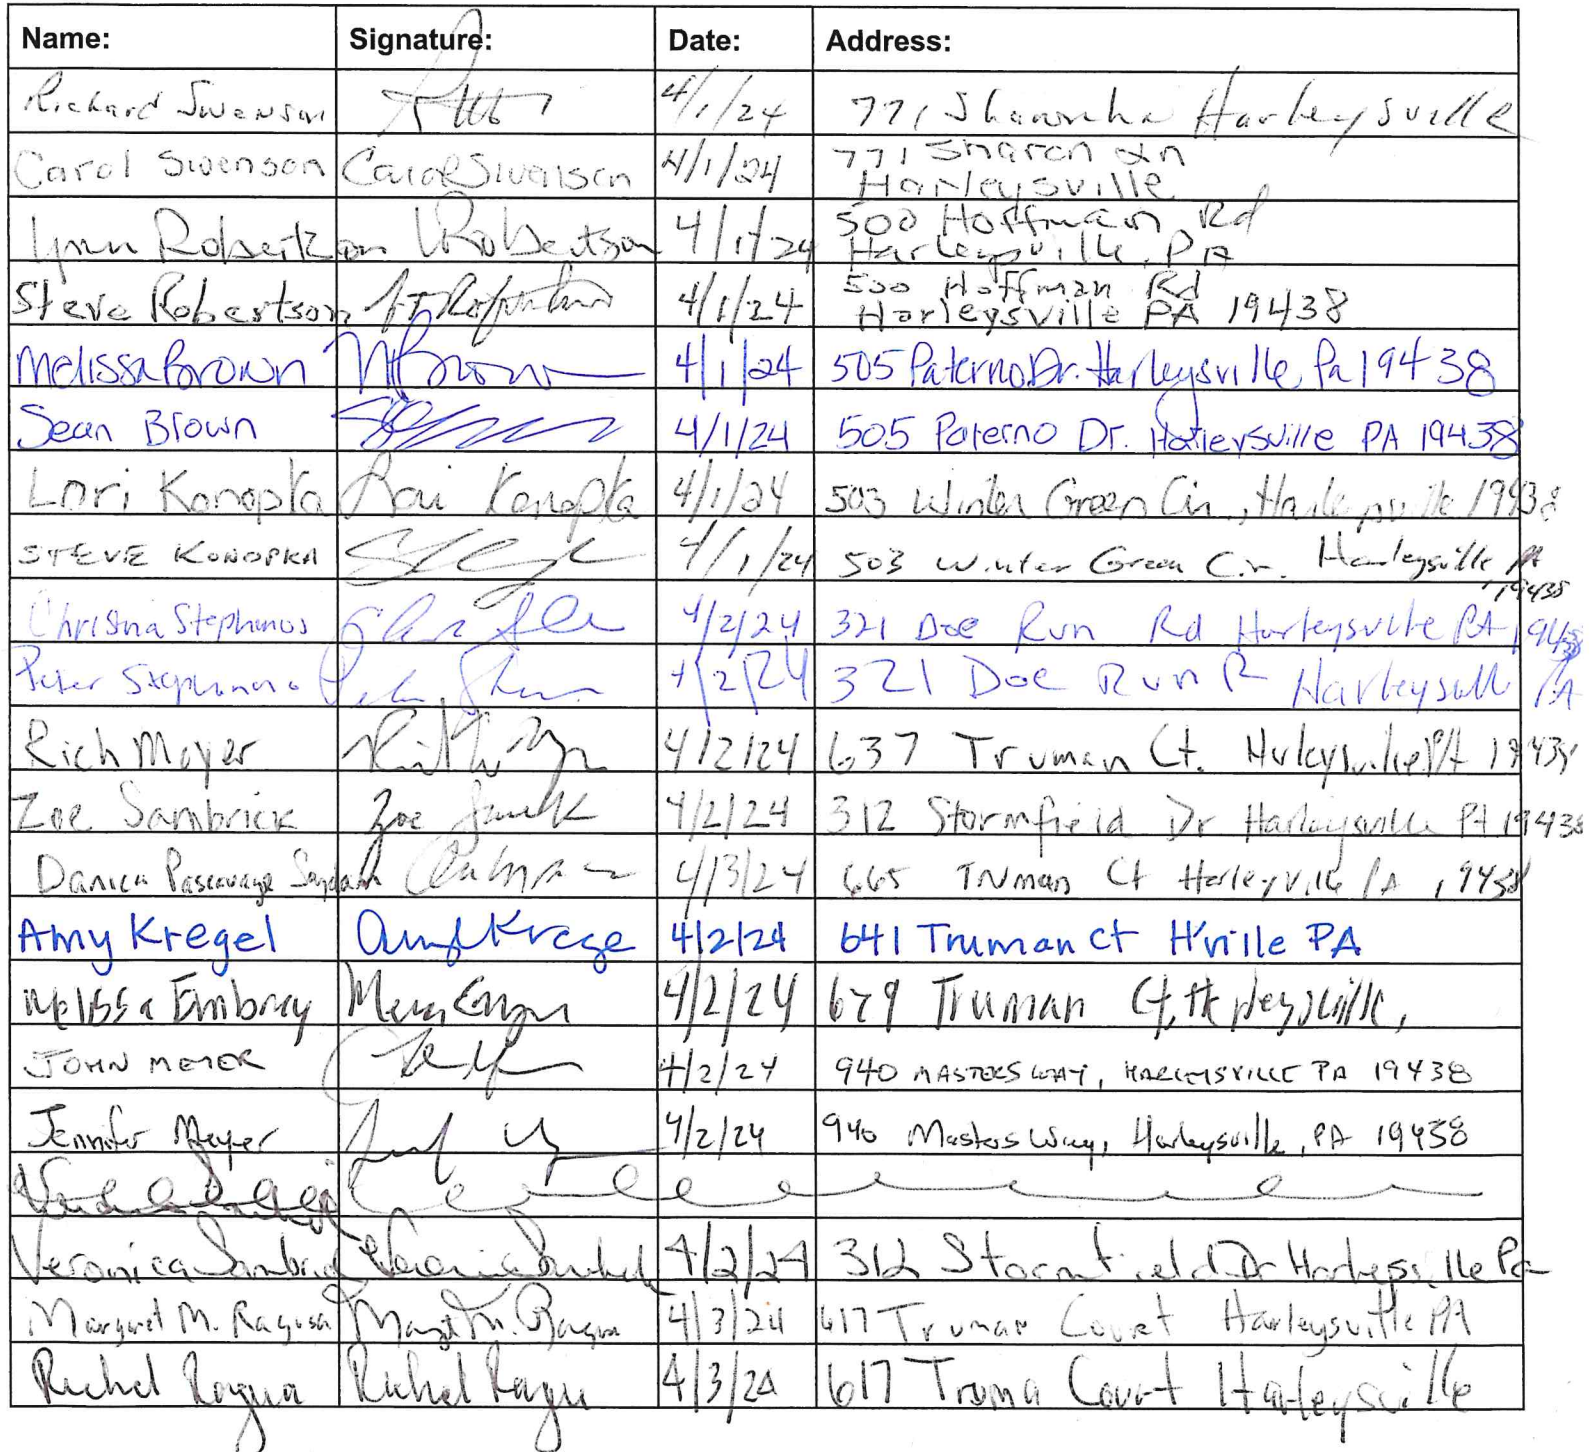 Name: Signature: Date: Address:
Richard Swenson 4/1/24 771 Harleysville
Carol Swenson Carol Swenson 4/1/24 771 Sharon Ln
Harleysville
Lynn Robertson LRobertson 4/1/24 500 Hoffman Rd
Harleysville, PA
Steve Robertson 4/1/24 500 Hoffman Rd
Harleysville PA 19438
Melissa Brown MBrown 4/1/24 505 Paterno Dr. Harleysville, Pa 19438
Sean Brown 4/1/24 505 Paterno Dr. Harleysville PA 19438
Lori Konopka Lori Konopka 4/1/24 503 Winter Green Cir, Harleysville 19438
STEVE KONOPKA 4/1/24 503 Winter Green Cir. Harleysville PA
19438
Christina Stephanos 4/2/24 321 Doe Run Rd Harleysville PA 19438
Peter Stephanos 4/2/24 321 Doe Run R Harleysville PA
Rich Moyer 4/2/24 637 Truman Ct. Harleysville PA 19438
Zoe Sambrick Zoe 4/2/24 312 Stormfield Dr Harleysville PA 19438
Danica Pascavage 4/3/24 665 Truman Ct Harleyville PA 19438
Amy Kregel Amy Krege 4/2/24 641 Truman Ct H'ville PA
Melissa Embrey 4/2/24 Truman Ct, Harleysville,
JOHN MEYER 4/2/24 940 MASTERS WAY, HARLEYSVILLE PA 19438
Jennifer Meyer 4/2/24 940 Masters Way, Harleysville, PA 19438
Veronica Sambrick Veronica Sambrick 4/2/24 312 Stormfield Dr Harleysville Pa
Margaret M. Ragusa 4/3/24 617 Truman Court Harleysville PA
Rachel Ragusa 4/3/24 617 Court Harleysville